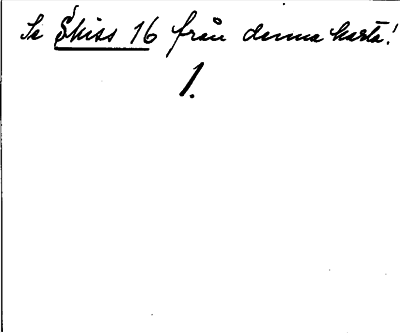 Se Skiss 16 från denna karta!
1.